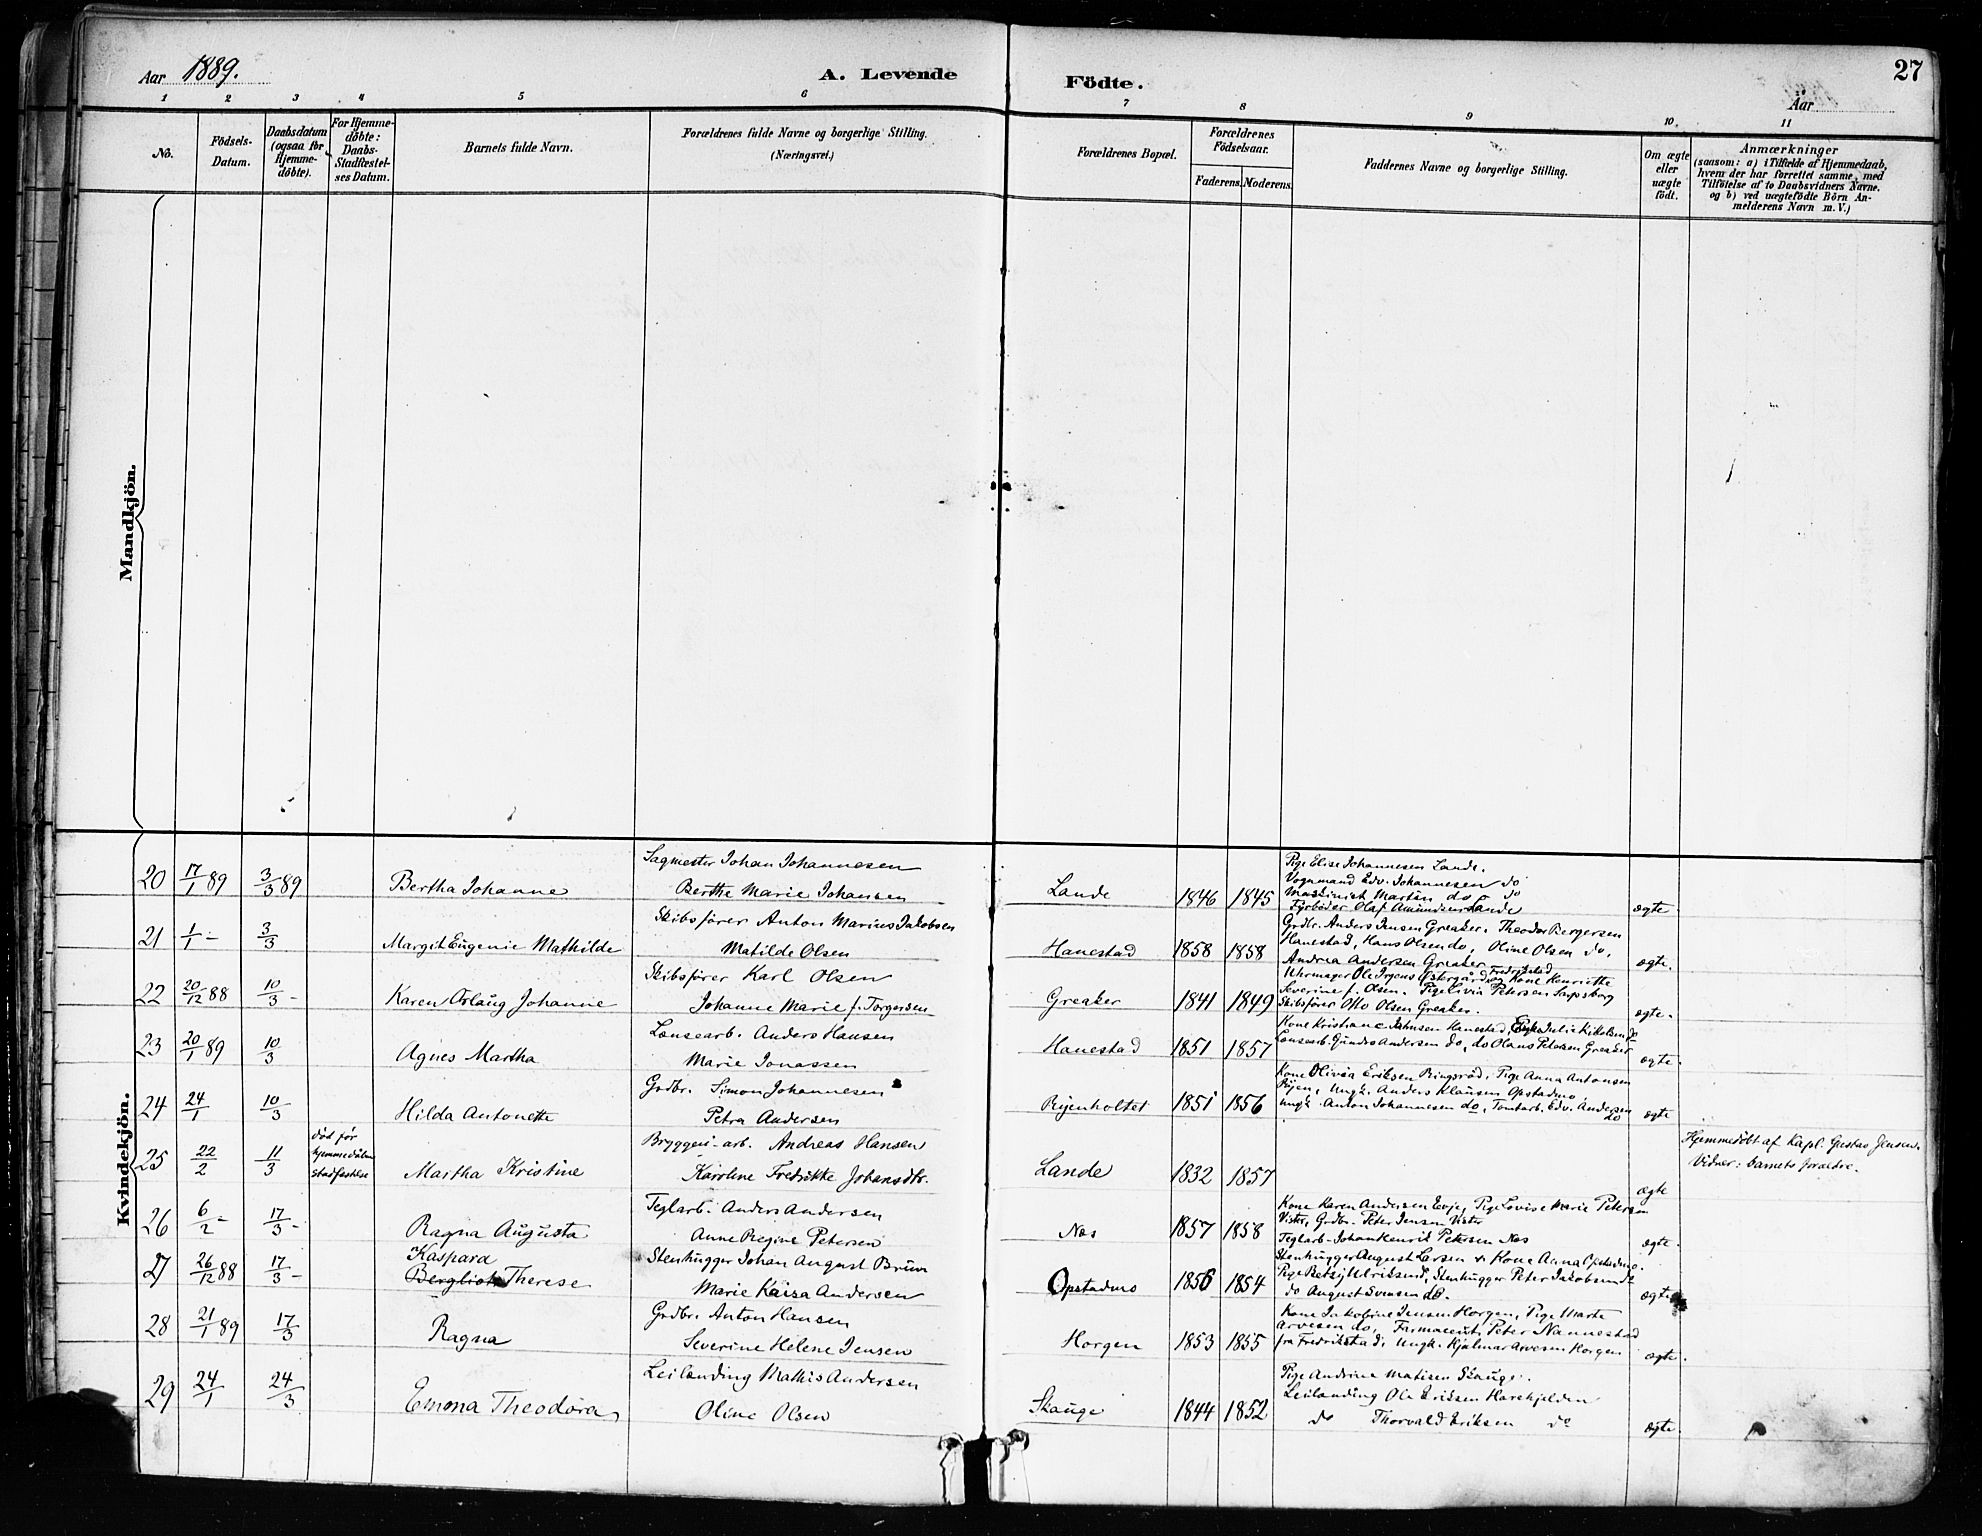 Aar 1889.
A. Levende
Födte.
27
Aar
1 2 3 4 5 6 7 8 9 10. 11
No.
Födsels-
Datum.
Daabsdatum
(ogsaa for
Hjemme-
döbte).
For Hjemme-
döbte:
Daabs-
Stadfæstel-
ses Datum.
Barnets fulde Navn.
Forældrenes fulde Navne og borgerlige Stilling.
(Næringsvei.)
Forældrenes Bopæl.
Forældrenes
Födselsaar.
Faderens. Moderens.
Faddernes Navne og borgerlige Stilling.
Om ægte
eller
uægte
födt.
Anmærkninger
(saasom: a) i Tilfælde af Hjemmedaab,
hvem der har forrettet samme, med
Tilföielse af to Daabsvidners Navne.
og b) ved uægtefödte Börn An-
melderens Navn m. V.)
Mandkjön.
Kvindekjön.
20 17/1 89 3/3 89 Bertha Johanne
Sagmester Johan Johannesen
Berthe Marie Johansen
Lande 1846 1845
Pige Elise Johannesen Lande.
Vognmand Edv. Johannesen do
Maskinist Martin do do
Fyrböder Olaf Amundsen Lande
ægte.
21 1/1 - 3/3 Margit Eugenie Mathilde
Skibsfører Anton Marius Jakobsen
Matilde Olsen
Hanestad 1858 1858
Grdbr. Anders Jensen Greaker. Theodor Bergersen
Hanestad, Hans Olsen do, Oline Olsen do,
Andrea Andersen Greaker
ægte.
22 20/12 88 10/3 - Karen Aslaug Johanne
Skibsfører Karl Olsen
Johanne Marie f. Torgersen
Greaker 1841 1849
Uhrmager Ole Irgens Østergård Fredrikstad og Kone Henriette
Severine f. Olsen. Pige Livia Petersen Sarpsborg
Skibsfører Otto Olsen Greaker.
ægte.
23 20/1 89 10/3 Agnes Martha
Lensearb. Anders Hansen
Marie Jonassen
Hanestad 1851 1857
Kone Kristiane Johnsen Hanestad, Enke Julie do
Lensearb. Gunder Andersen do, do Olaus Petersen Greaker
ægte.
24 24/1 10/3 Hilda Antonette
Grdbr. Simon Johannesen
Petra Andersen
Ryenholtet 1851 1856
Kone Olivia Eriksen Ringsrød, Pige Anna Antonsen
Ryen, Ungk. Anders Klausen Opstadmo,
Ungk. Anton Johannesen do, Tomtarb. Edv. Andersen do
ægte
25 22/2 11/3
død før
hjemmedåbens
stadfæstelse
Martha Kristine
Bryggeri-arb. Andreas Hansen
Karoline Fredrikke Johansdtr.
Lande 1832 1857
ægte
Hjemmedöbt af Kapl. Gustav Jensen.
Vidner: barnets forældre.
26 6/2 - 17/3 - Ragna Augusta
Teglarb. Anders Andersen
Anne Regine Petersen
Nes 1857 1858
Kone Karen Andersen Evje, Pige Lovise Marie Petersen
Vister, Grdbr. Peter Jensen Vister
Teglarb. Johan Henrik Petersen Nes
ægte.
27 26/12 88 17/3 - Kaspara
Bergliot Therese
Stenhugger Johan August Brun
Marie Kaisa Andersen
Opstadmo 1856 1854
Stenhugger August Larsen & Kone Anna Opstadmo.
Pige Betsy Ulriksen do, Stenhugger Peter Jakobsen do
do August Svensen do.
ægte
28 21/1 89 17/3 Ragna
Grdbr. Anton Hansen
Severine Helene Jensen
Horgen 1853 1855
Kone Jakobine Jensen Horgen, Pige Marte
Arvesen do, Farmaceut Peter Nannestad
fra Fredrikstad, Ungk. Hjalmar Arvesen Horgen
ægte.
29 24/1 24/3 Emma Theodora
Leilænding Mathis Andersen
Oline Olsen
Skauge 1844 1852
Pige Andrine Matisen Skauge.
Leilænding Ole Eriksen Harehjelden
do Thorvald Eriksen do
ægte.